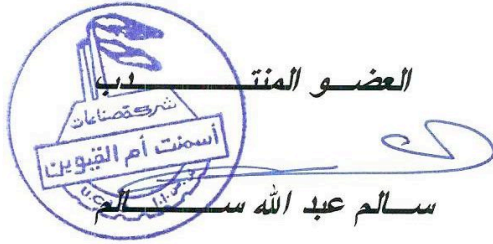 العضو المنتدب
شركة صناعات
أسمنت أم القيوين
سالم عبد الله سالم